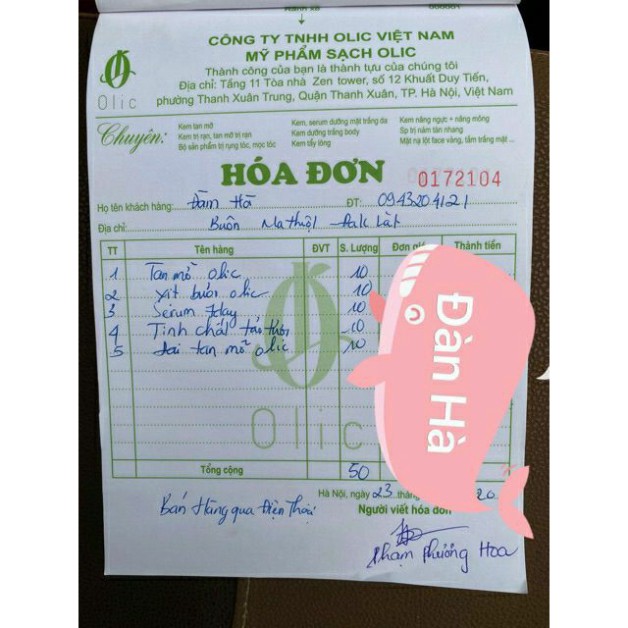 CÔNG TY TNHH OLIC VIỆT NAM
MỸ PHẨM SẠCH OLIC
Thành công của bạn là thành tựu của chúng tôi
Địa chỉ: Tầng 11 Tòa nhà Zen tower, số 12 Khuất Duy Tiến,
phường Thanh Xuân Trung, Quận Thanh Xuân, TP. Hà Nội, Việt Nam
Olic
Chuyên:
Kem tan mỡ
Kem trị rạn, tan mỡ trị rạn
Bộ sản phẩm trị rụng tóc, mọc tóc
Kem, serum dưỡng mặt trắng da
Kem dưỡng trắng body
Kem tẩy lông
Kem nâng ngực + nâng mông
Sp trị nám tàn nhang
Mặt nạ lột face vàng, tắm trắng mặt ...
HÓA ĐƠN
0172104
Họ tên khách hàng: Đàm Hà ĐT: 0943204121
Địa chỉ: Buôn Ma thuột
TT Tên hàng ĐVT S. Lượng Đơn Thành tiền
1 Tan mỡ olic 10
2 xịt bưởi olic 10
3 Serum 7day 10
4 Tinh chất 10
5 đai tan mỡ olic 10
Olic
Đàn Hà
Tổng cộng 50
Hà Nội, ngày 23 thán 20
Bán Hàng qua Điện Thoại
Người viết hóa đơn
Phạm Phương Hoa